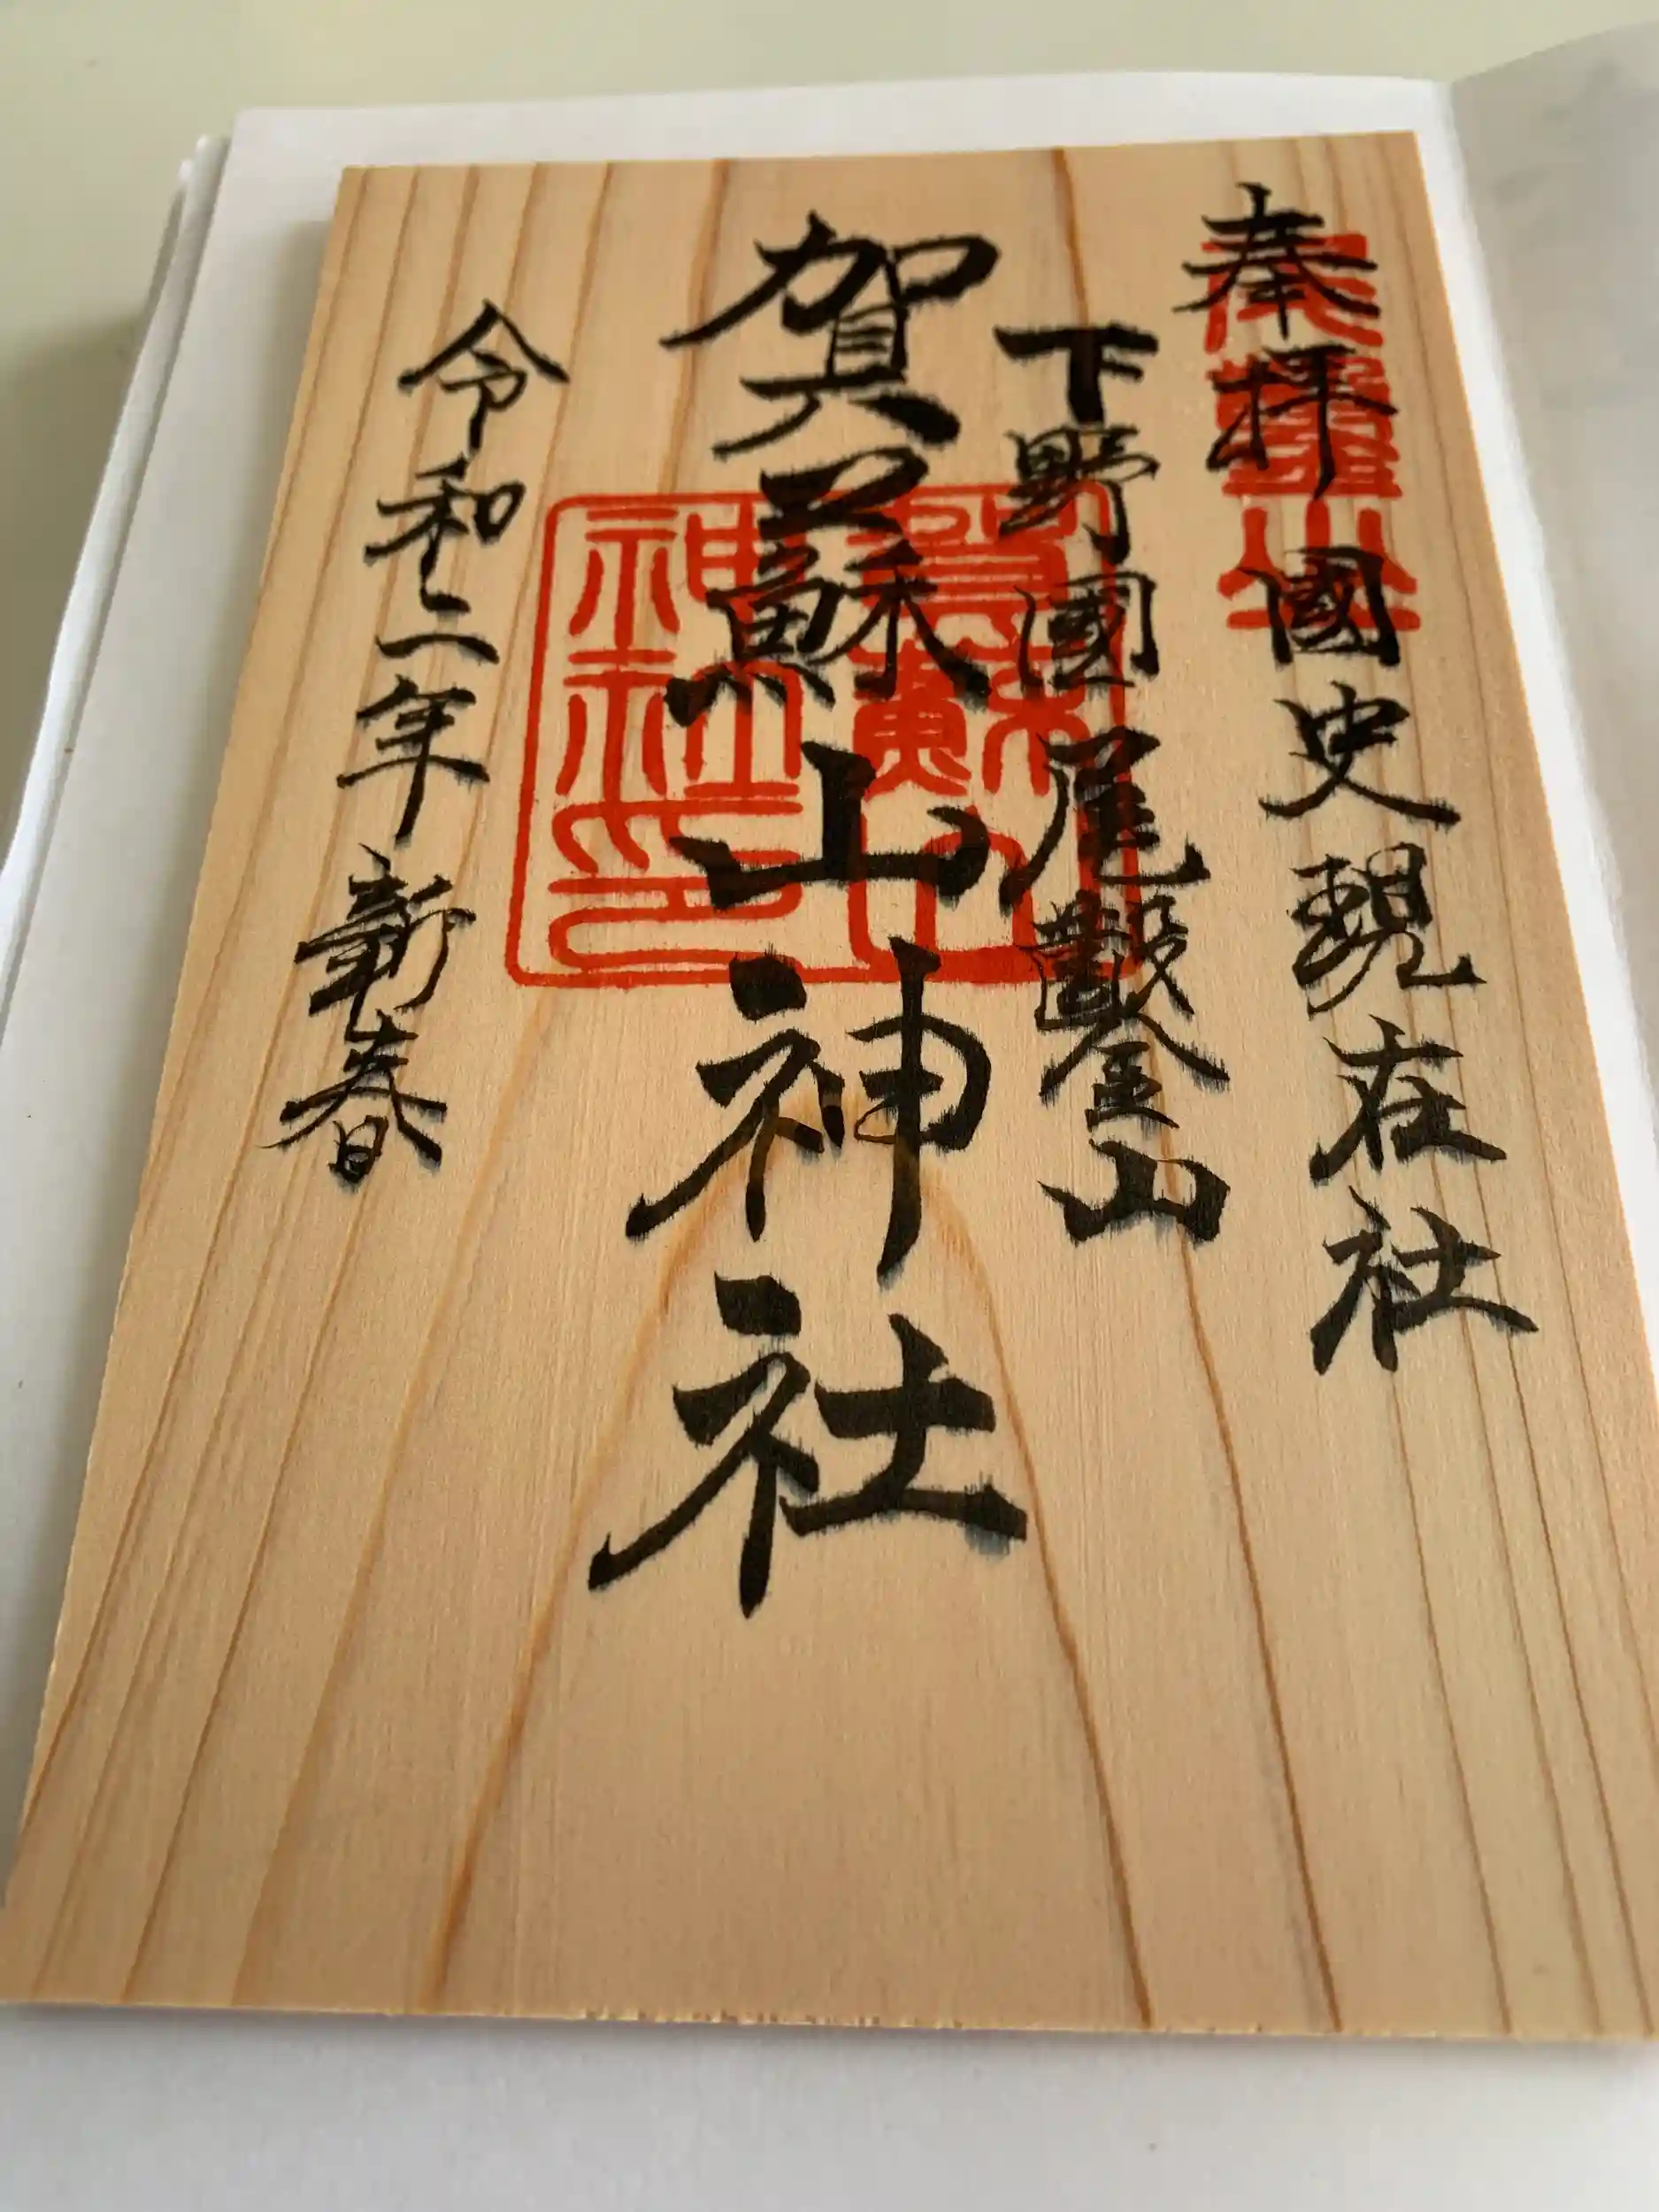 奉拝 國史現在社
下野國 尾鑿山
賀蘇山神社
令和二年 新春
尾鑿山
賀蘇山
神社印